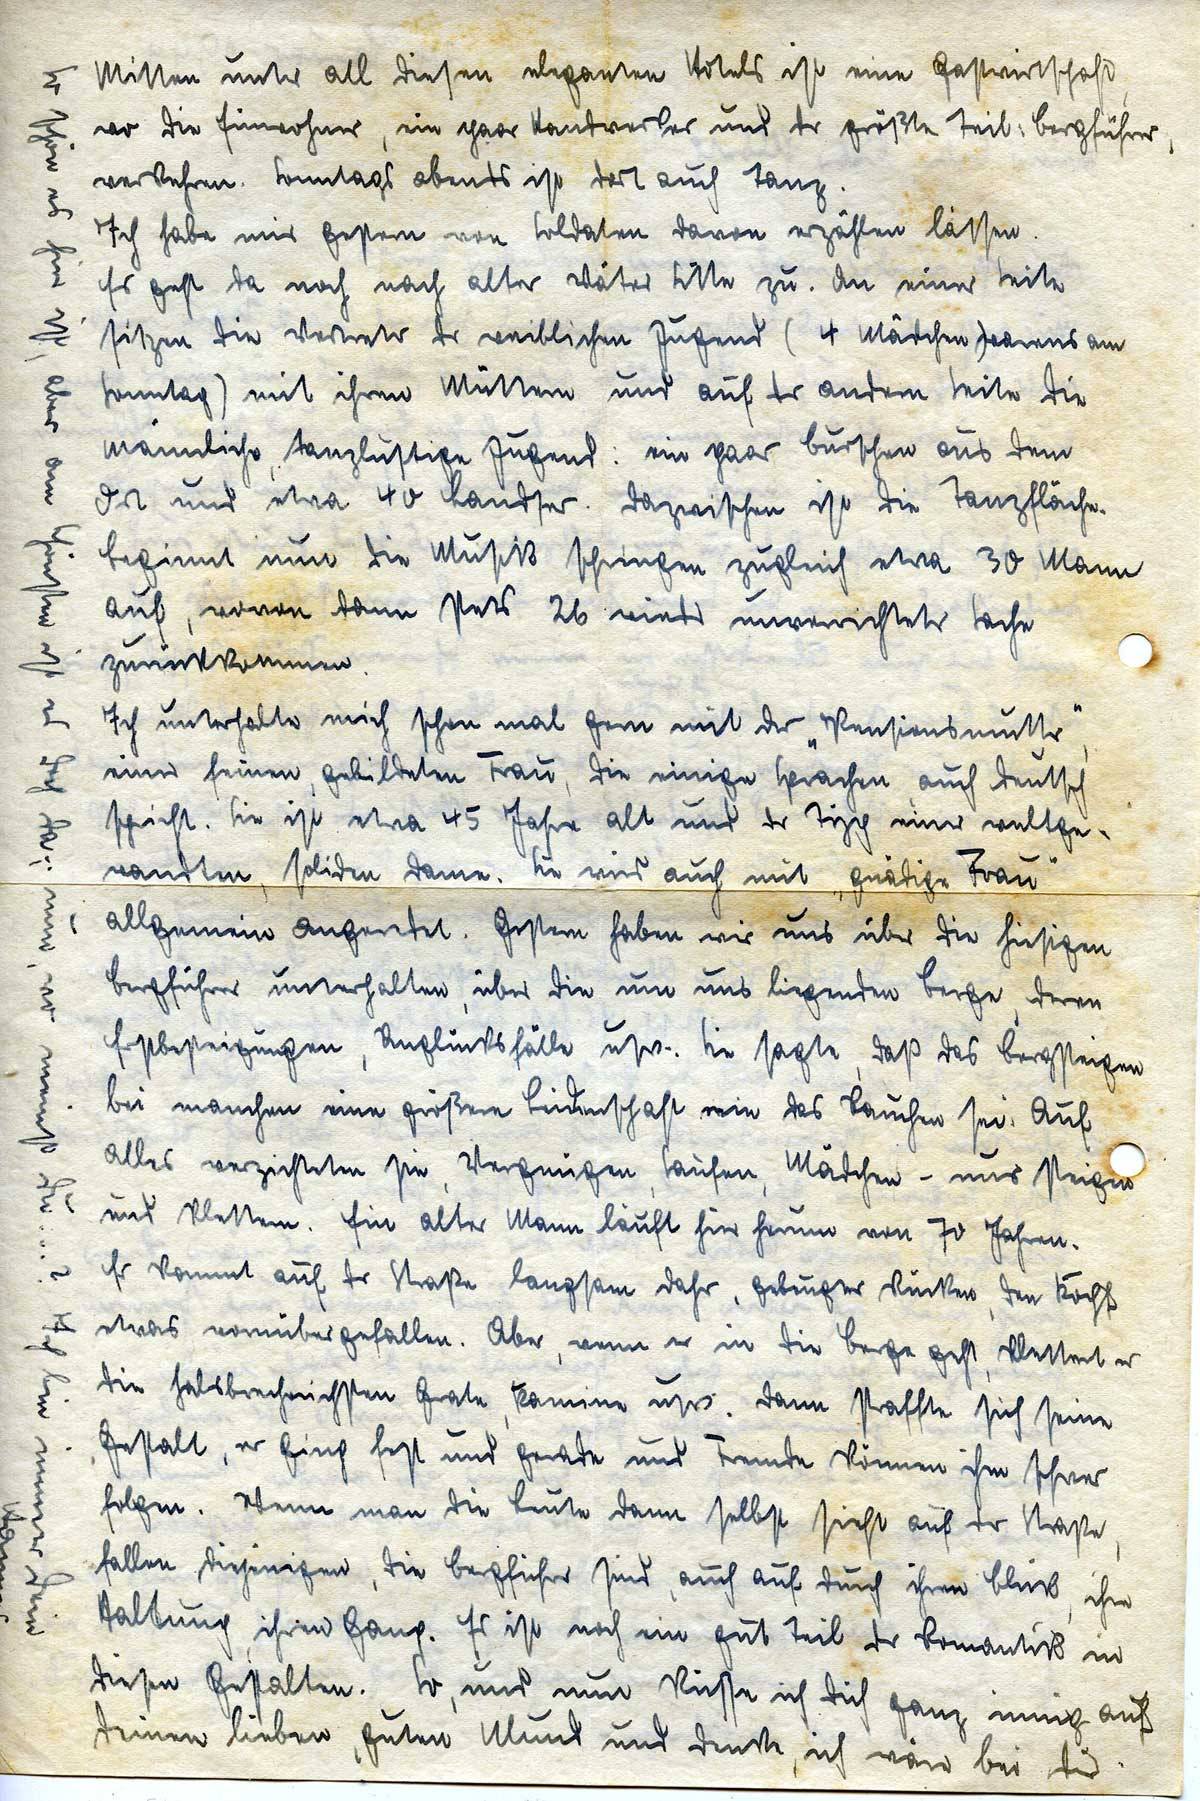 Mitten unter all diesen eleganten Hotels ist eine Gastwirtschaft,
wo die Einwohner, ein paar Handwerker und der größte Teil: Bergführer,
verkehren. Sonntags abends ist dort auch Tanz.
Ich habe mir gestern von Soldaten davon erzählen lassen.
Es geht da noch nach alter Väter Sitte zu. An einer Seite
sitzen die Vertreter der weiblichen Jugend (4 Mädchen warens am
Sonntag) mit ihren Müttern und auf der andern Seite die
männliche, tanzlustige Jugend: ein paar Burschen aus dem
Ort und etwa 40 Landser. Dazwischen ist die Tanzfläche.
Beginnt nun die Musik springen zugleich etwa 30 Mann
auf, wovon dann stets 26 wieder unverrichteter Sache
zurückkommen.
Ich unterhalte mich schon mal gern mit der „Pensionsmutter",
einer feinen, gebildeten Frau, die einige Sprachen auch deutsch
spricht. Sie ist etwa 45 Jahre alt und der Typ einer weltge-
wandten, soliden Dame. Sie wird auch mit „gnädige Frau"
allgemein angeredet. Gestern haben wir uns über die hiesigen
Bergführer unterhalten, über die um uns liegenden Berge, deren
Erstbesteigungen, Unglücksfälle usw. Sie sagte, daß das Bergsteigen
bei manchen eine größere Leidenschaft wie das Rauchen sei. Auf
alles verzichteten sie, Vergnügen, Saufen, Mädchen - nur steigen
und klettern. Ein alter Mann läuft hier herum von 70 Jahren.
Er kommt auf der Straße langsam daher, gebeugter Rücken, den Kopf
etwas vornübergefallen. Aber, wenn er in die Berge geht, klettert er
die halsbrecherischsten Grate, Kamine usw. Dann straffte sich seine
Gestalt, er ging fest und gerade und Fremde können ihm schwer
folgen. Wenn man die Leute dann selbst sieht auf der Straße,
fallen diejenigen, die Bergführer sind, auch auf durch ihren Blick, ihre
Haltung, ihren Gang. Es ist noch ein gut Teil der Romantik in
diesen Gestalten. So, und nun küsse ich Dich ganz innig auf
Deinen lieben, guten Mund und denke, ich wäre bei Dir.
So schön es hier ist, aber am schönsten ist es doch da: nun, wo meinst Du...? Ich bin immer Dein